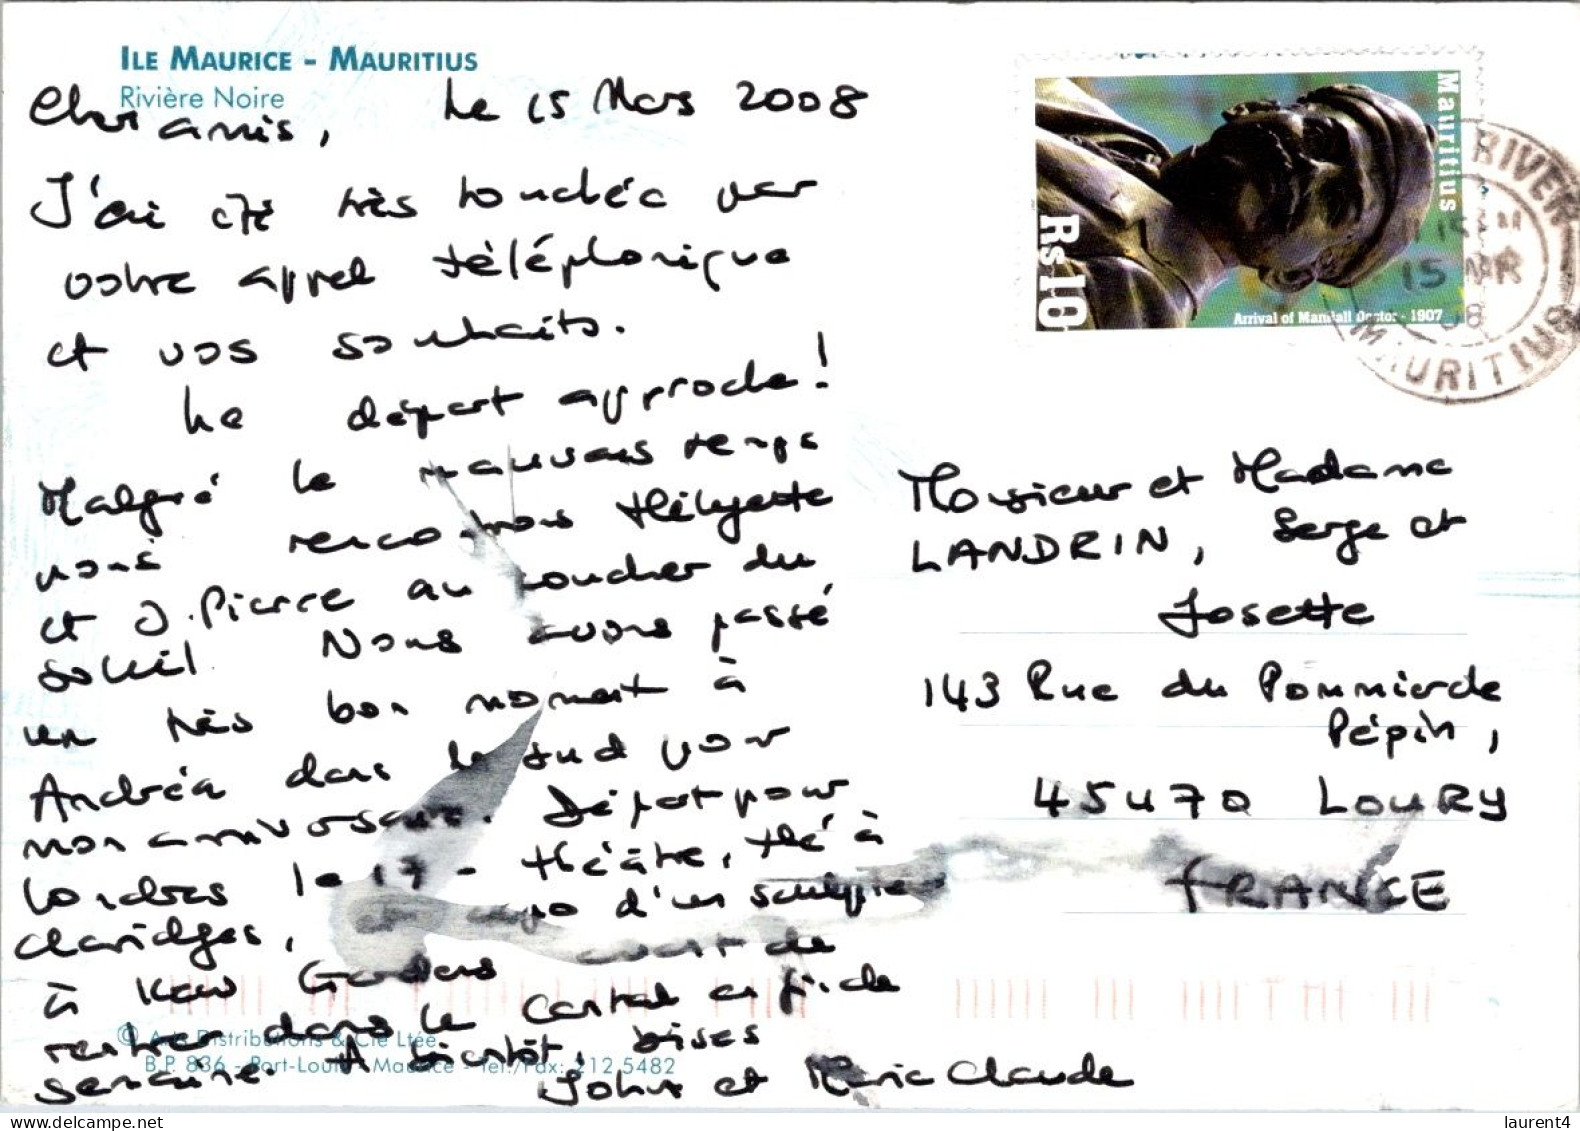 ILE MAURICE - MAURITIUS
Rivière Noire
Chers amis, Le 15 Mars 2008
J'ai été très touchée par
votre appel téléphonique
et vos souhaits.
Le départ approche!
Malgré le mauvais temps
nous rencontrons Hélyette
et J. Pierre au coucher du
soleil. Nous avons passé
un très bon moment à
Andréa dans le sud pour
mon anniversaire. Départ pour
Londres le 17 - théâtre, thé à
Claridges, expo d'un sculpteur
à Kew Gardens avant de
rentrer dans le Cantal en fin de
semaine. A bientôt, bises
John et Marie Claude
© Arts Distributions & Cie Ltée
B.P. 836 - Port-Louis - Maurice - Tel./Fax: 212 5482
Mauritius
Rs 10
Arrival of Manilall Doctor - 1907
RIVER
15 MR
08
MAURITIUS
Monsieur et Madame
LANDRIN, Serge et
Josette
143 Rue du Pommier de
Pépin,
45470 LOURY
FRANCE
laurent4